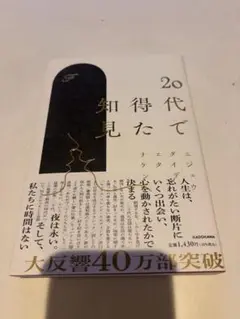 20代で
得た
知見
人生は、
忘れがたい断片に
いくつ出会い、
心を動かされたかで
決まる
夜は永い。
そして、
私たちに時間はない
KADOKAWA
定価1,430円
大反響40万部突破